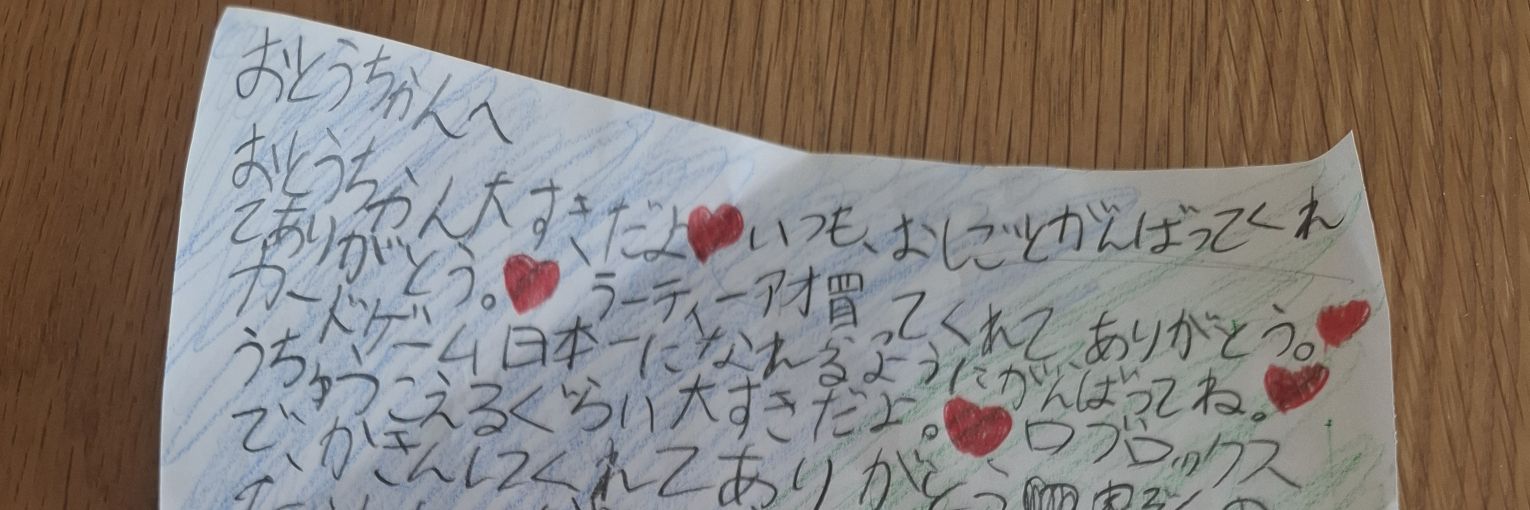 おとうちゃんへ
おとうちゃん大すきだよ❤いつも、おしごとがんばってくれ
てありがとう。❤ラーティーアオ買ってくれて、ありがとう。❤
カードゲーム日本一になれるようにがんばってね。❤
うちゅうこえるぐらい大すきだよ。❤ロブロックス
で、かきんしてくれてありがとう